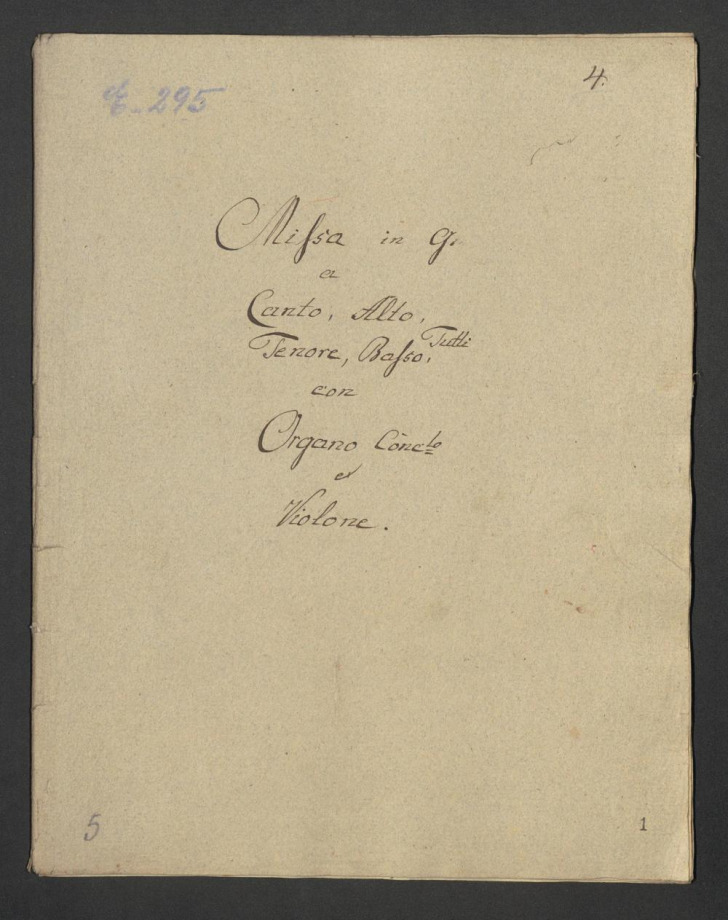 E. 295
4.
Missa in G.
a
Canto, Alto,
Tenore, Basso, Tutti
con
Organo Conc.to
et
Violone.
5
1